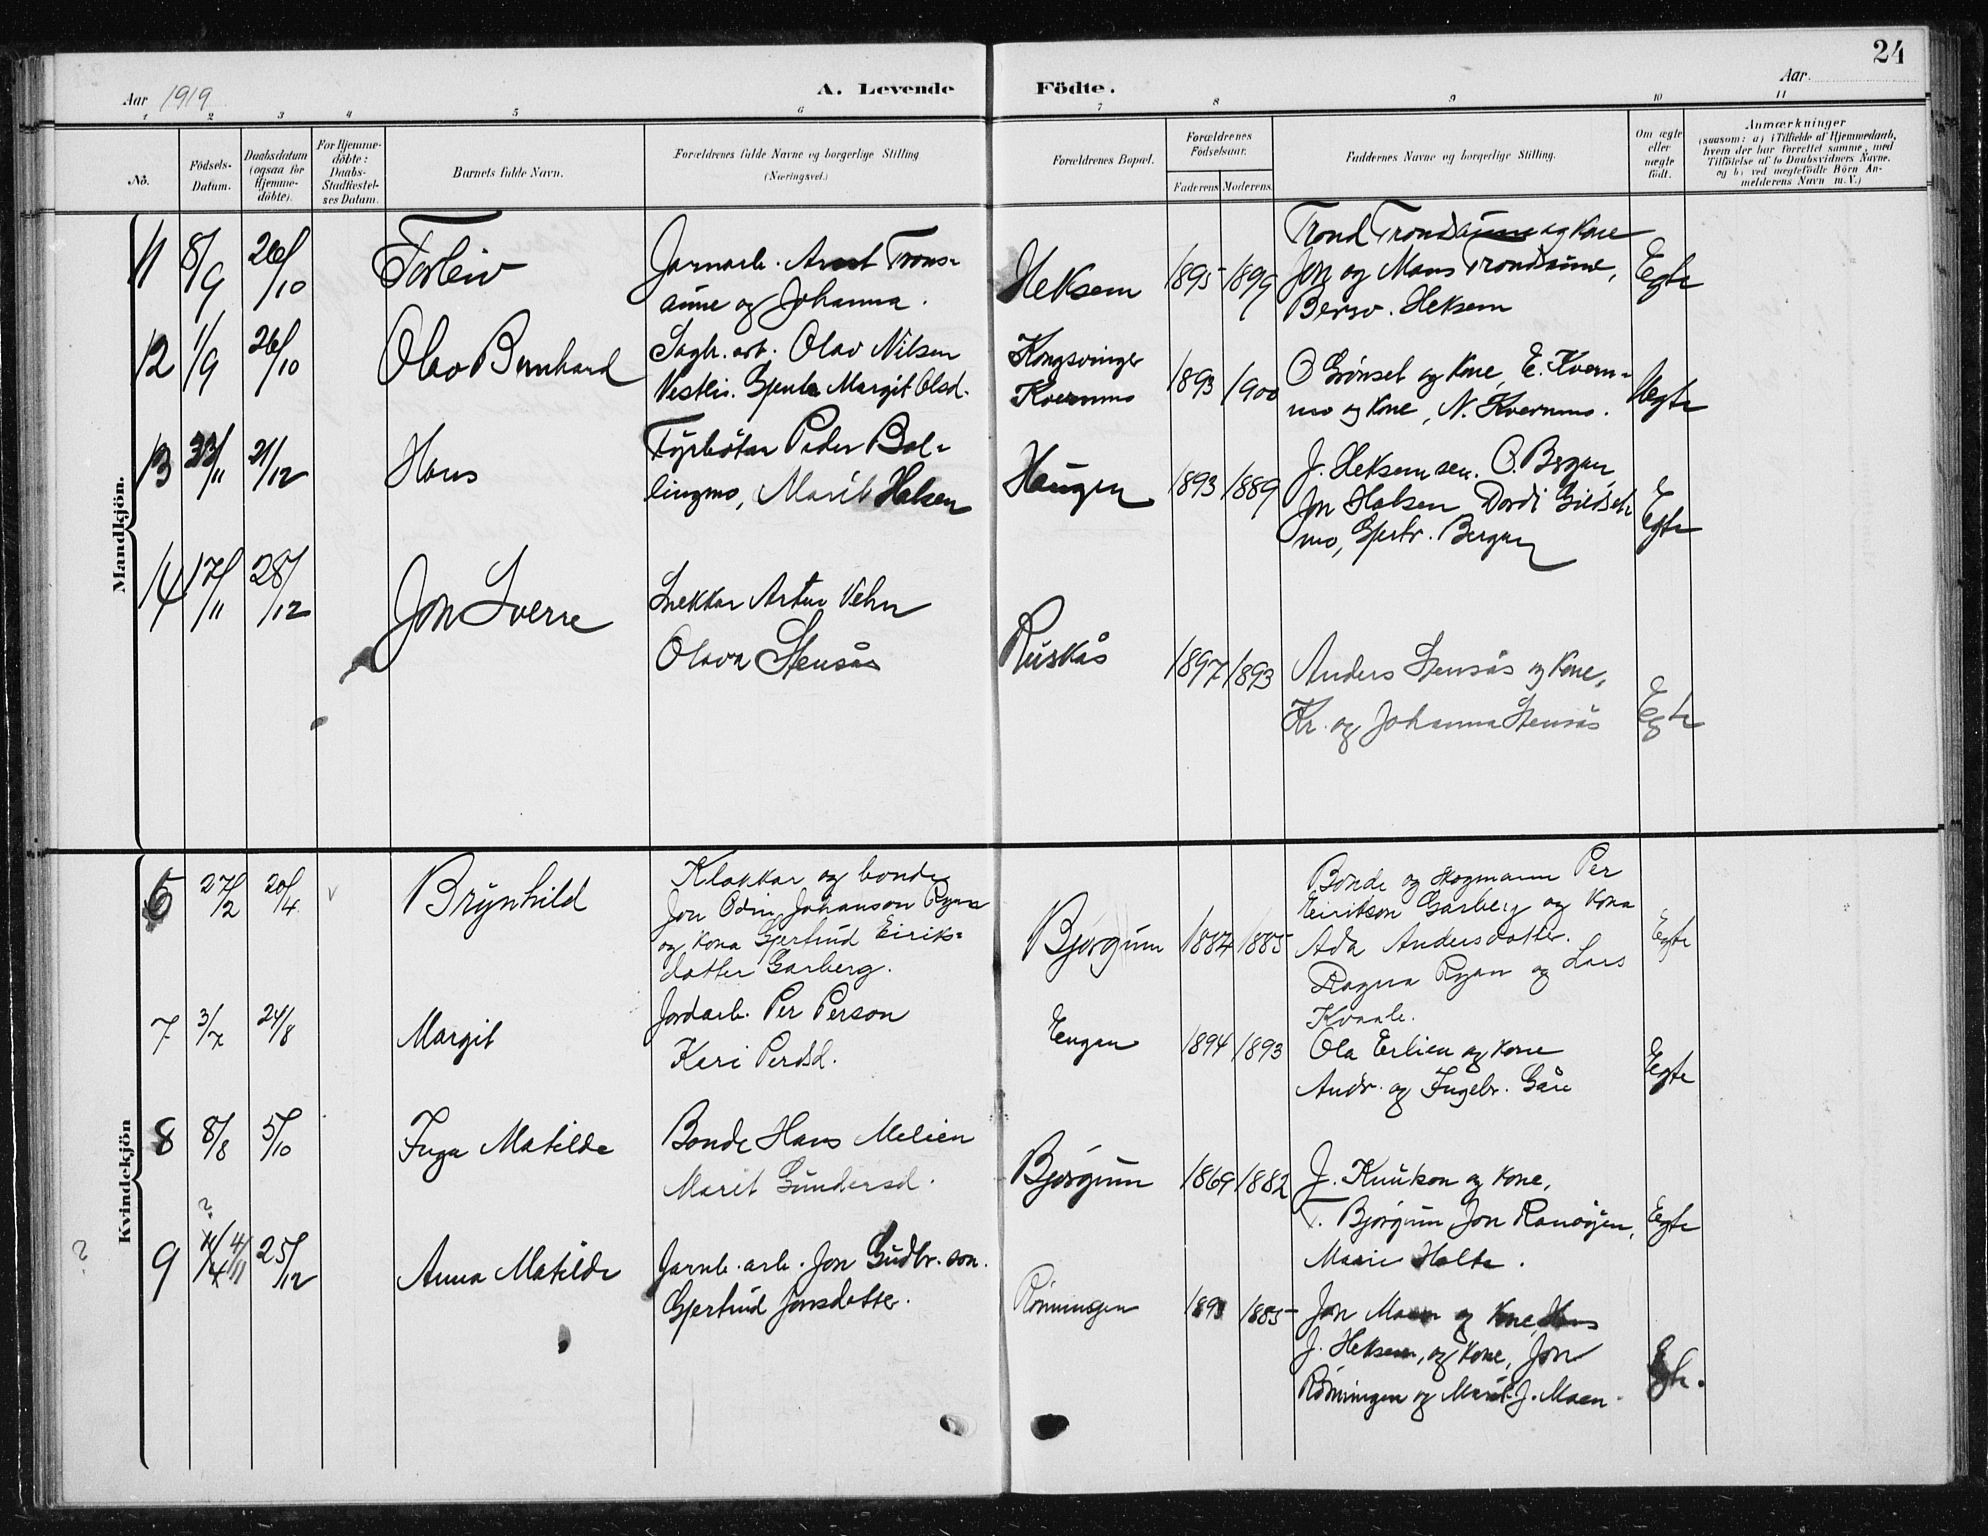 24
Aar 1919
A. Levende
Födte.
Aar.
1 2 3 4 5 6 7 8 9 10 11
No.
Födsels-
Datum.
Daabsdatum
(ogsaa for
Hjemme-
döbte).
For Hjemme-
döbte:
Daabs-
Stadfæstel-
ses Datum.
Barnets fulde Navn.
Forældrenes fulde Navne og borgerlige Stilling
(Næringsvei.)
Forældrenes Bopæl.
Forældrenes
Födselsaar.
Faderens Moderens
Faddernes Navne og borgerlige Stilling.
Om ægte
eller
uægte
födt.
Anmærkninger
(saasom: a) i Tilfælde af Hjemmedaab,
hvem der har forrettet samme, med
Tilföielse af to Daabsvidners Navne.
og b) ved uægtefödte Börn An-
melderens Navn m. V.)
Mandkjön.
11 8/9 26/10 Torleiv
Jarnarb. Arnt Trons-
aune og Johanna.
Heksem 1895 1899
Trond Trondsaune og kone
Jon og Mons Trondsaune,
Bersv. Heksem
Egte
12 1/9 26/10 Olav Bernhard
Sagb. arb. Olav Nilsen
Vestli. Gjente Margit Olsd.
Kongsvinger
Kvernmo
1893 1900
O Grønset og kone, E. Kvern-
mo og kone, N. Kvernmo.
Uegte
13 23/11 21/12 Hans
Fyrbötar Peder Bol-
lingmo, Marit Halsen
Haugen 1893 1889
J. Heksem sen. O. Bergan,
Jon Halsen, Dordi Gildset-
mo, Gjertr. Bergan
Egte
14 17/11 28/12 Jon Sverre
Snekkar Artur Vehn
Olava Stensås
Ruskås 1897 1893
Anders Stensås og kone,
Kr. og Johanna Stensås
Egte
Kvindekjön
6 27/2 20/4 Brynhild
Klokkar og bonde
Jon Odin Johanson Ryan
og kona Gjertrud Eiriks-
dotter Garberg.
Bjørgum 1884 1885
Bonde og skogmann Per
Eirikson Garberg og kona
Ada Andersdotter.
Ragna Ryan og Lars
Kvaale.
Egte
7 3/7 24/8 Margit
Jordarb. Per Person
Kari Persd.
Engan 1894 1893
Ola Erlien og kone
Andr. og Ingebr. Gåre
Egte
8 8/8 5/10 Inga Matilde
Bonde Hans Melien
Marit Gundersd.
Bjørgum 1869 1882
J. Knutson og kone,
T. Bjørgum, Jon Ranøyen,
Marie Holte.
Egte
?
9 11/4 4/11 25/12 Anna Matilde
Jarnb. arb. Jon Gudbr. son.
Gjertrud Jonsdotter.
Rønningen 1885
Jon Moen og kone, Hans
J. Heksem, og kone, Jon
Rønningen og Marit J. Moen.
Egte.
?